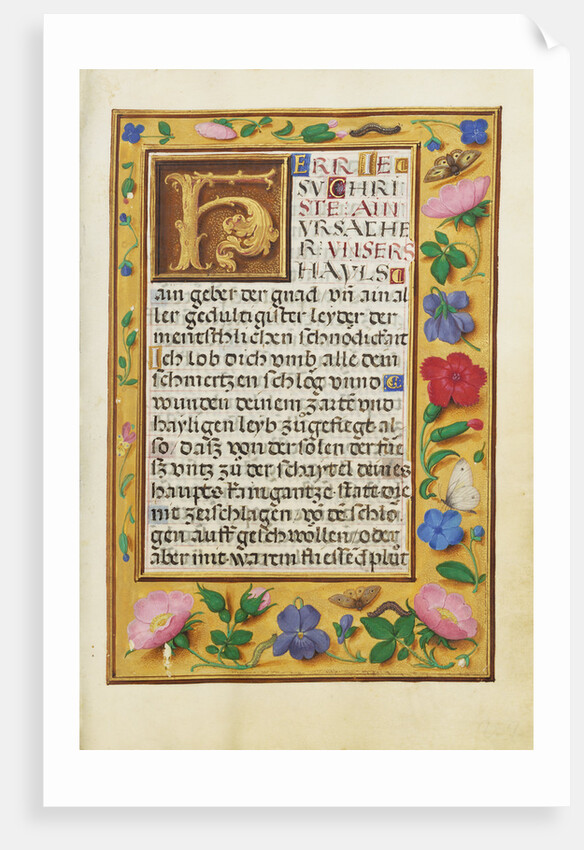 HERR IE
SV CHRI
STE AIN
VRSACHE
R VNSERS
HAYLS
ain geber der gnad/ vn̄ ain al
ler gedultigister leyder der
mentschlichen schnodickait
Ich lob dich vmb alle dein
schmertzen schlög vnnd
wunden deinem zartē vnd
hayligen leyb zůgefiegt al
so/ dasz von der solen der fue
sz vntz zů der schaytel deines
haupts kain gantze statt/ die
nit zerschlagen/ vō dē schlö
gen auff geschwollen/ oder
aber mit warm fliessēd plůt